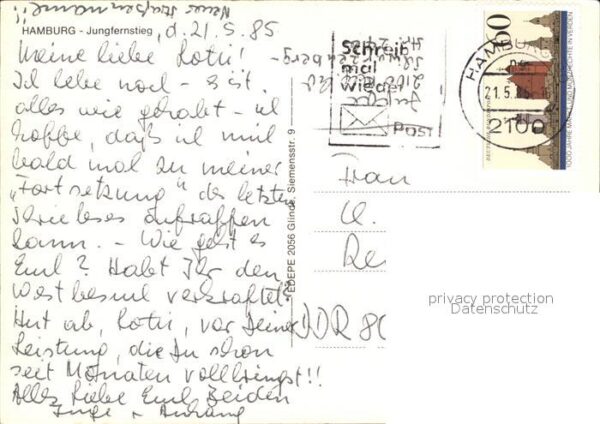 Neue Straßenname!!
HAMBURG - Jungfernstieg, d. 21.5.85
Meine liebe Lotti! -
Ich lebe noch - es ist
alles wie gehabt - ich
hoffe, daß ich mich
bald mal zu meiner
"Fortsetzung" des letzten
Schreibens aufraffen
kann. - Wie geht es
Euch? Habt Ihr den
Westbesuch verkraftet?
Hut ab, Lotti, vor Deiner
Leistung, die Du schon
seit Monaten vollbringst!!
Alles Liebe Euch Beiden
Inge + Anhang
EDEPE 2056 Glinde, Siemensstr. 9
Schreib
mal
wieder
POST
HAMBURG
21.5.85
2100
60
1000 JAHRE MARKT- UND MÜNZRECHTE IN VERDEN
Frau
U.
Re
DDR 80
privacy protection
Datenschutz